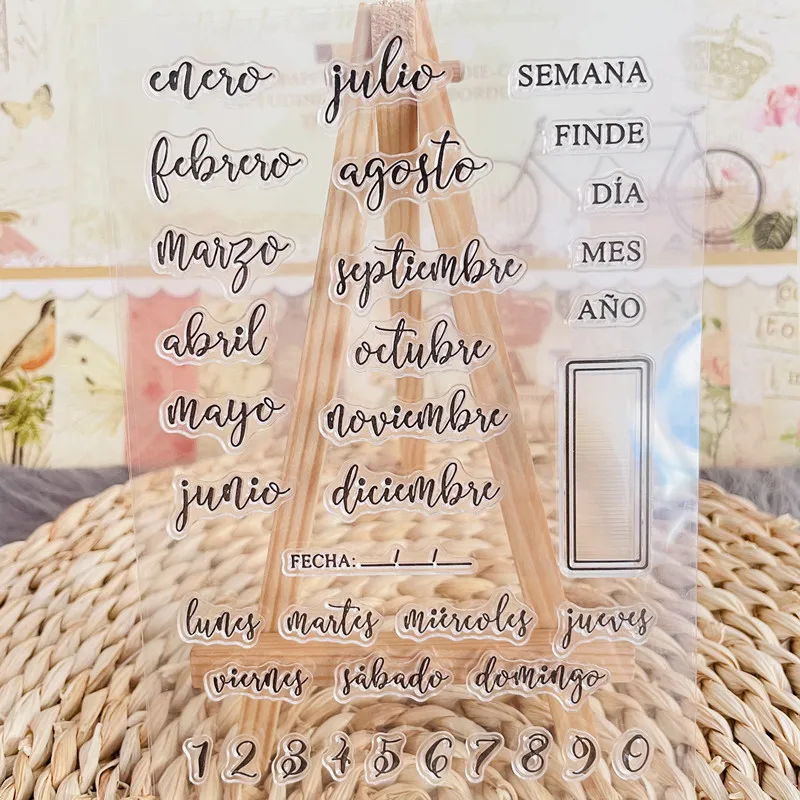 enero
febrero
marzo
abril
mayo
junio
julio
agosto
septiembre
octubre
noviembre
diciembre
SEMANA
FINDE
DÍA
MES
AÑO
FECHA:___/___/___
lunes martes miércoles jueves
viernes sábado domingo
1 2 3 4 5 6 7 8 9 0